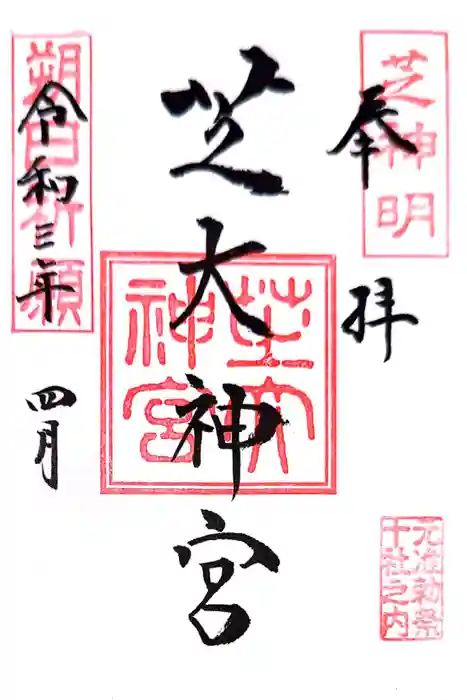 奉拝
芝神明
元准勅祭
十社之内
芝大神宮
芝大
神宮
令和三年
四月
朔日祈願